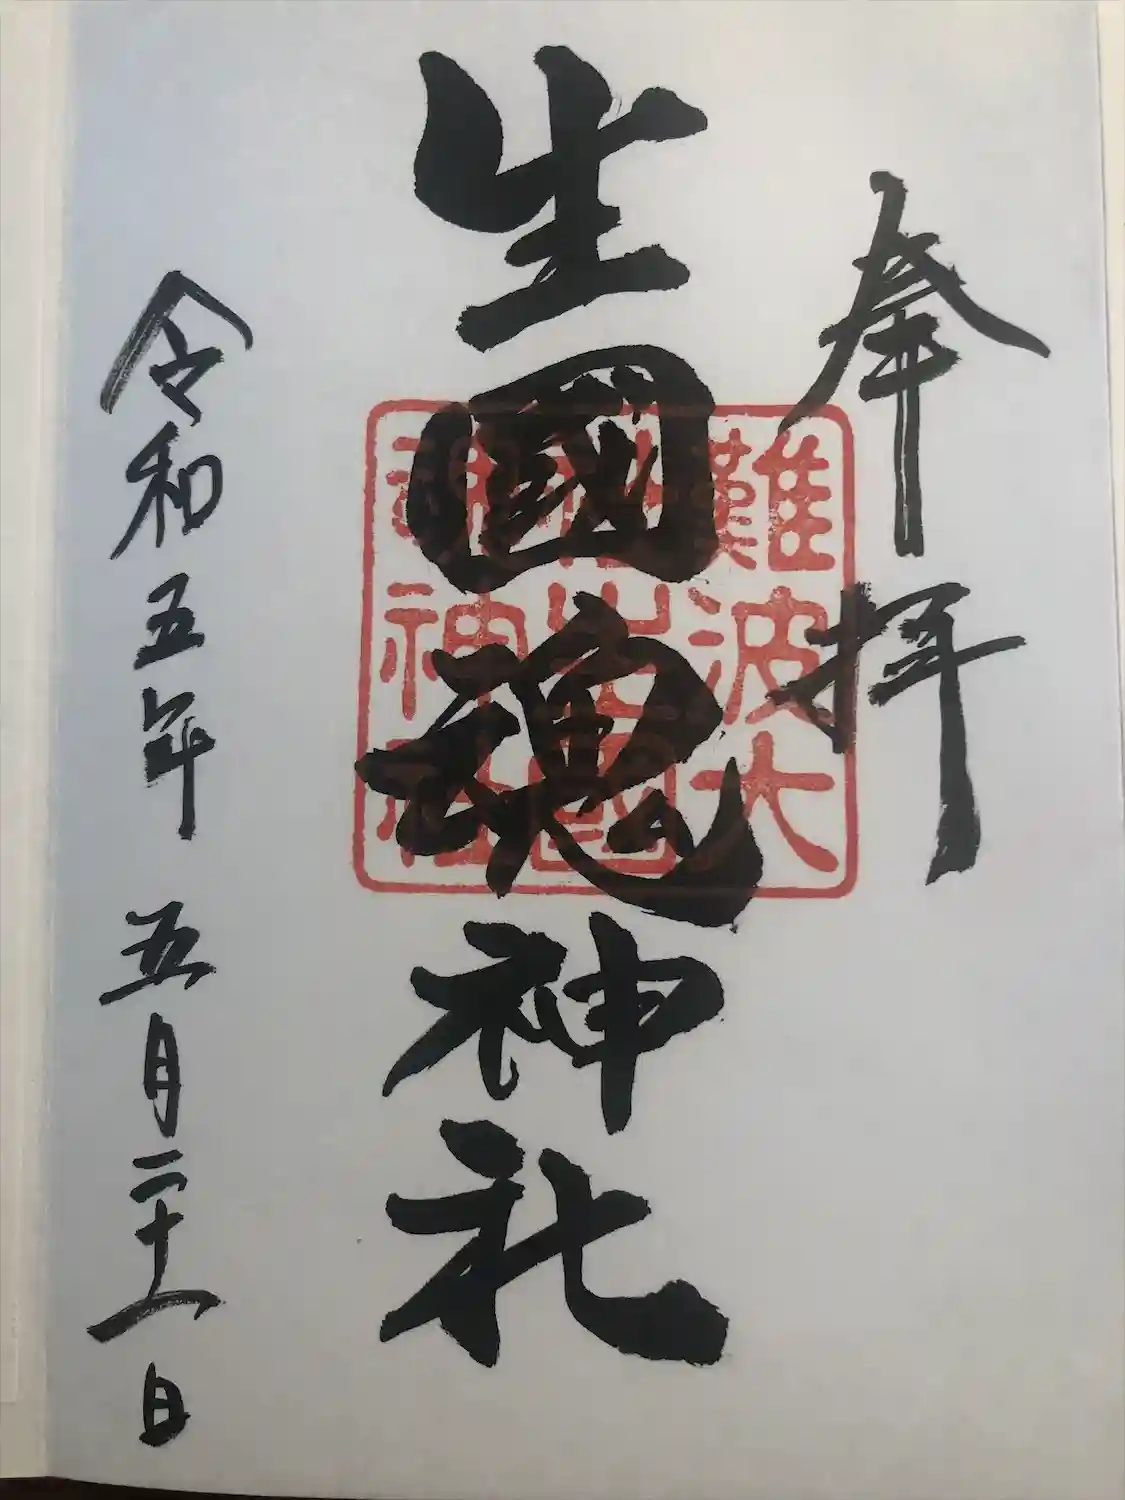 奉拝
生國魂神社
難波大社生國魂神社
令和五年 五月二十八日